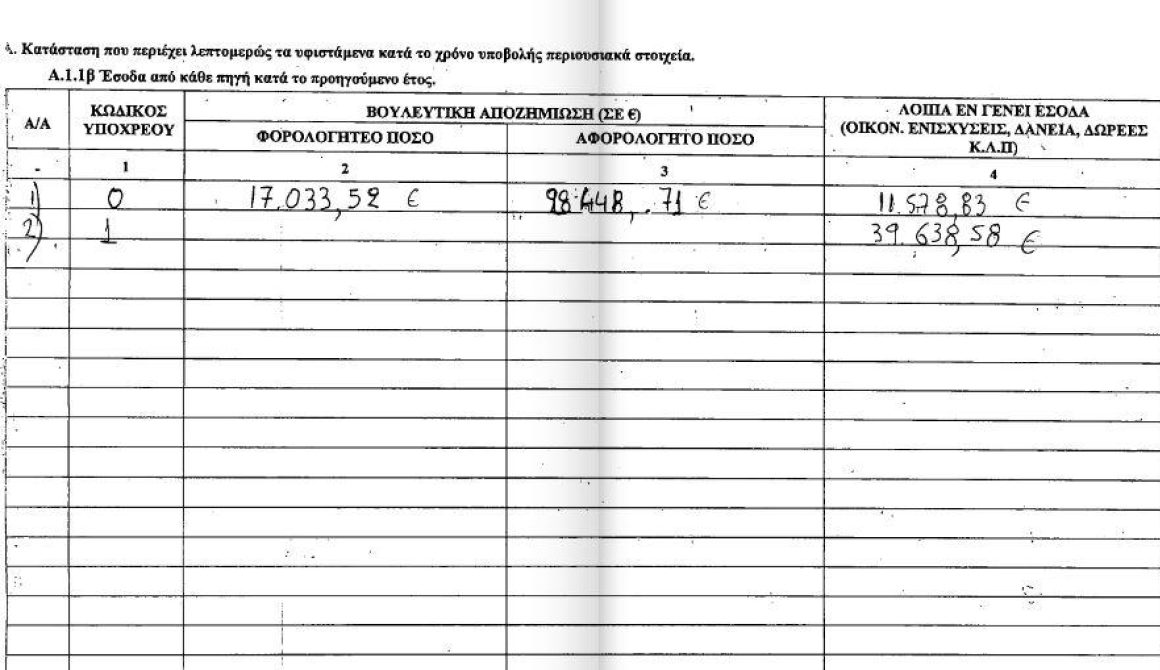 Α. Κατάσταση που περιέχει λεπτομερώς τα υφιστάμενα κατά το χρόνο υποβολής περιουσιακά στοιχεία.
Α.1.1β Έσοδα από κάθε πηγή κατά το προηγούμενο έτος.
Α/Α ΚΩΔΙΚΟΣ ΥΠΟΧΡΕΟΥ ΒΟΥΛΕΥΤΙΚΗ ΑΠΟΖΗΜΙΩΣΗ (ΣΕ €) ΛΟΙΠΑ ΕΝ ΓΕΝΕΙ ΕΣΟΔΑ
ΦΟΡΟΛΟΓΗΤΕΟ ΠΟΣΟ ΑΦΟΡΟΛΟΓΗΤΟ ΠΟΣΟ (ΟΙΚΟΝ. ΕΝΙΣΧΥΣΕΙΣ, ΔΑΝΕΙΑ, ΔΩΡΕΕΣ
Κ.Λ.Π)
- 1 2 3 4
1) 0 17.033,52 € 98.448,71 € 11.578,83 €
2) 1 39.638,58 €